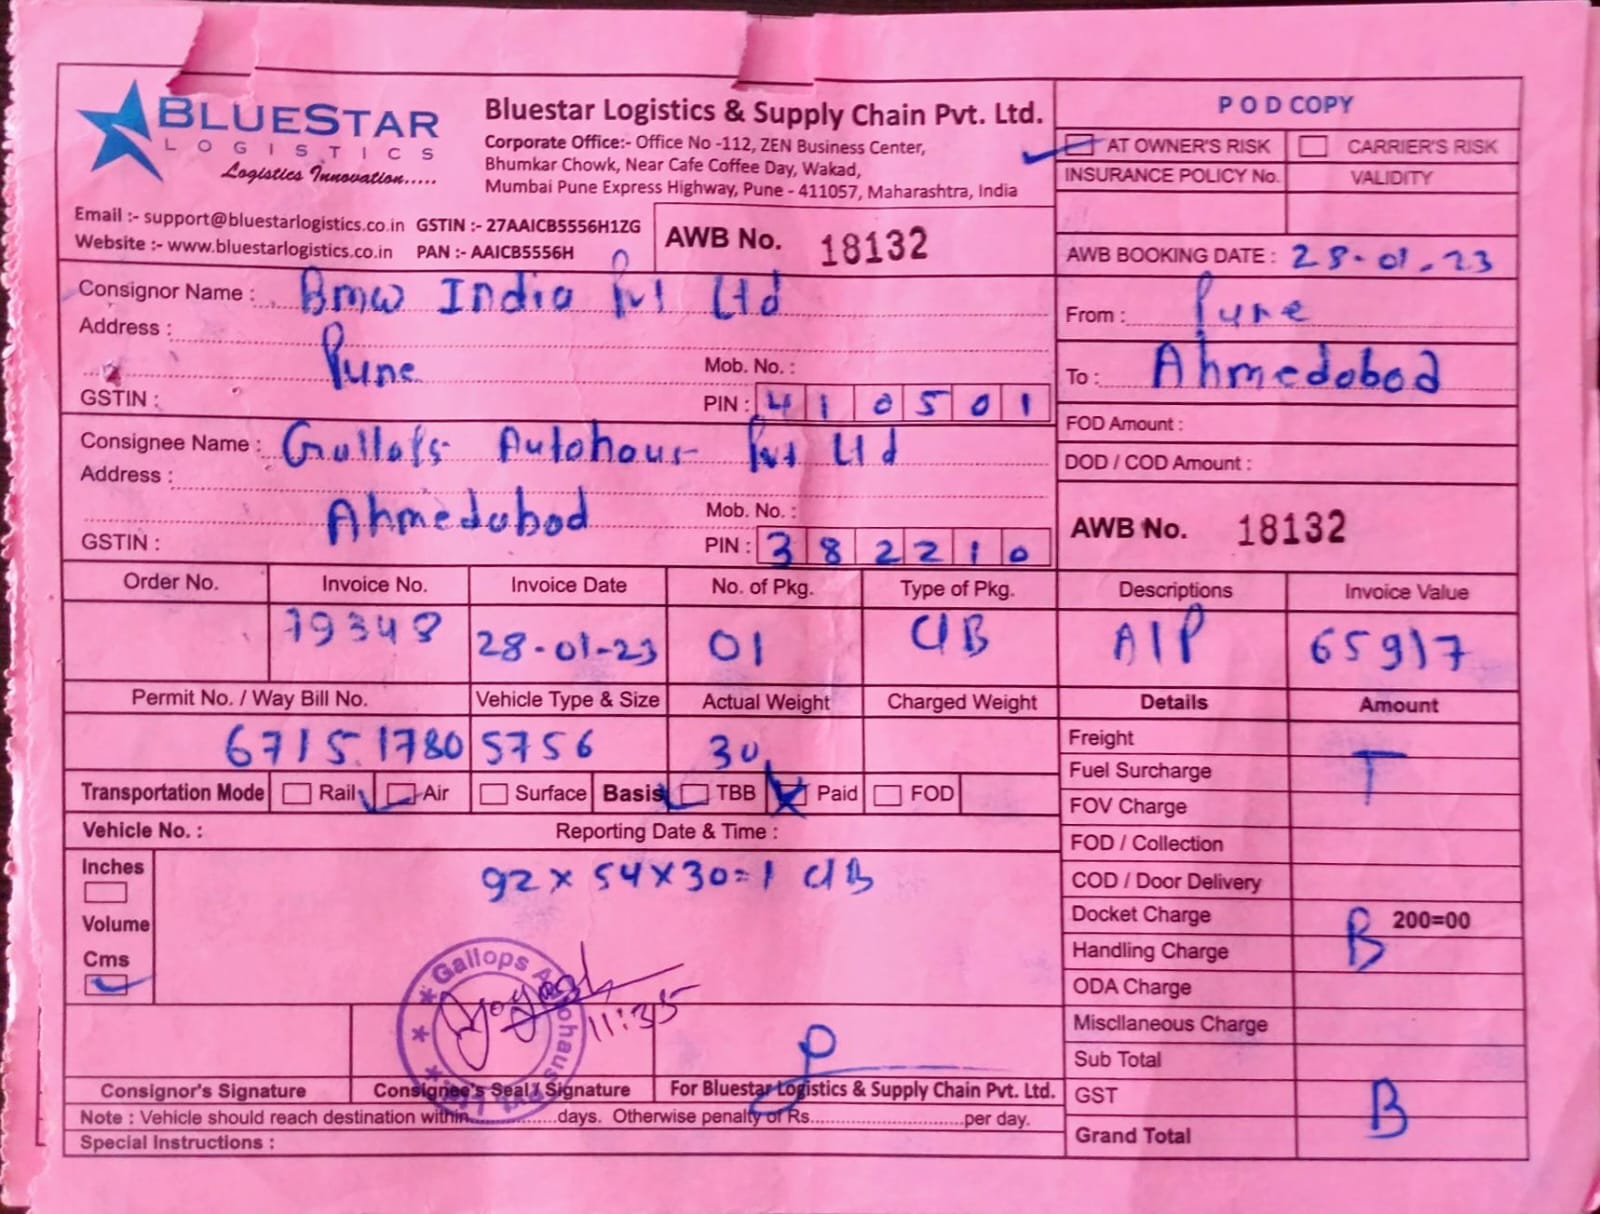 BLUESTAR
LOGISTICS
Logistics Innovation.....
Bluestar Logistics & Supply Chain Pvt. Ltd.
Corporate Office:- Office No -112, ZEN Business Center,
Bhumkar Chowk, Near Cafe Coffee Day, Wakad,
Mumbai Pune Express Highway, Pune - 411057, Maharashtra, India
Email :- support@bluestarlogistics.co.in GSTIN :- 27AAICB5556H1ZG
Website :- www.bluestarlogistics.co.in PAN :- AAICB5556H
AWB No. 18132
POD COPY
AT OWNER'S RISK CARRIER'S RISK
INSURANCE POLICY No. VALIDITY
AWB BOOKING DATE : 28-01-23
Consignor Name : Bmw India Pvt Ltd
Address :
Pune Mob. No. :
GSTIN : PIN : 410501
From : Pune
To : Ahmedabad
FOD Amount :
DOD / COD Amount :
Consignee Name : Gallops Autohaus Pvt Ltd
Address :
Ahmedabad Mob. No. :
GSTIN : PIN : 382210
AWB No. 18132
Order No. Invoice No. Invoice Date No. of Pkg. Type of Pkg. Descriptions Invoice Value
79348 28-01-23 01 C/B A/P 65917
Permit No. / Way Bill No. Vehicle Type & Size Actual Weight Charged Weight Details Amount
67151780 5756 30
Transportation Mode Rail Air Surface Basis TBB Paid FOD
Vehicle No. : Reporting Date & Time :
Inches
Volume
Cms
92 x 54 x 30 = 1 C/B
Freight
Fuel Surcharge T
FOV Charge
FOD / Collection
COD / Door Delivery
Docket Charge B 200=00
Handling Charge
ODA Charge
Miscllaneous Charge
Sub Total
GST B
Grand Total
Gallops Autohaus Pvt. Ltd.
11:35
Consignor's Signature Consignee's Seal / Signature For Bluestar Logistics & Supply Chain Pvt. Ltd.
Note : Vehicle should reach destination within..............days. Otherwise penalty of Rs..........................per day.
Special Instructions :